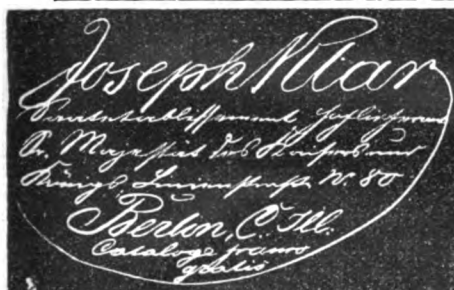 Joseph Klar
Samenetablissement, Hoflieferant
Sr. Majestät des Kaisers und
Königs. Linienstraße N. 80
Berlin, C. Ill.
Cataloge franco
gratis